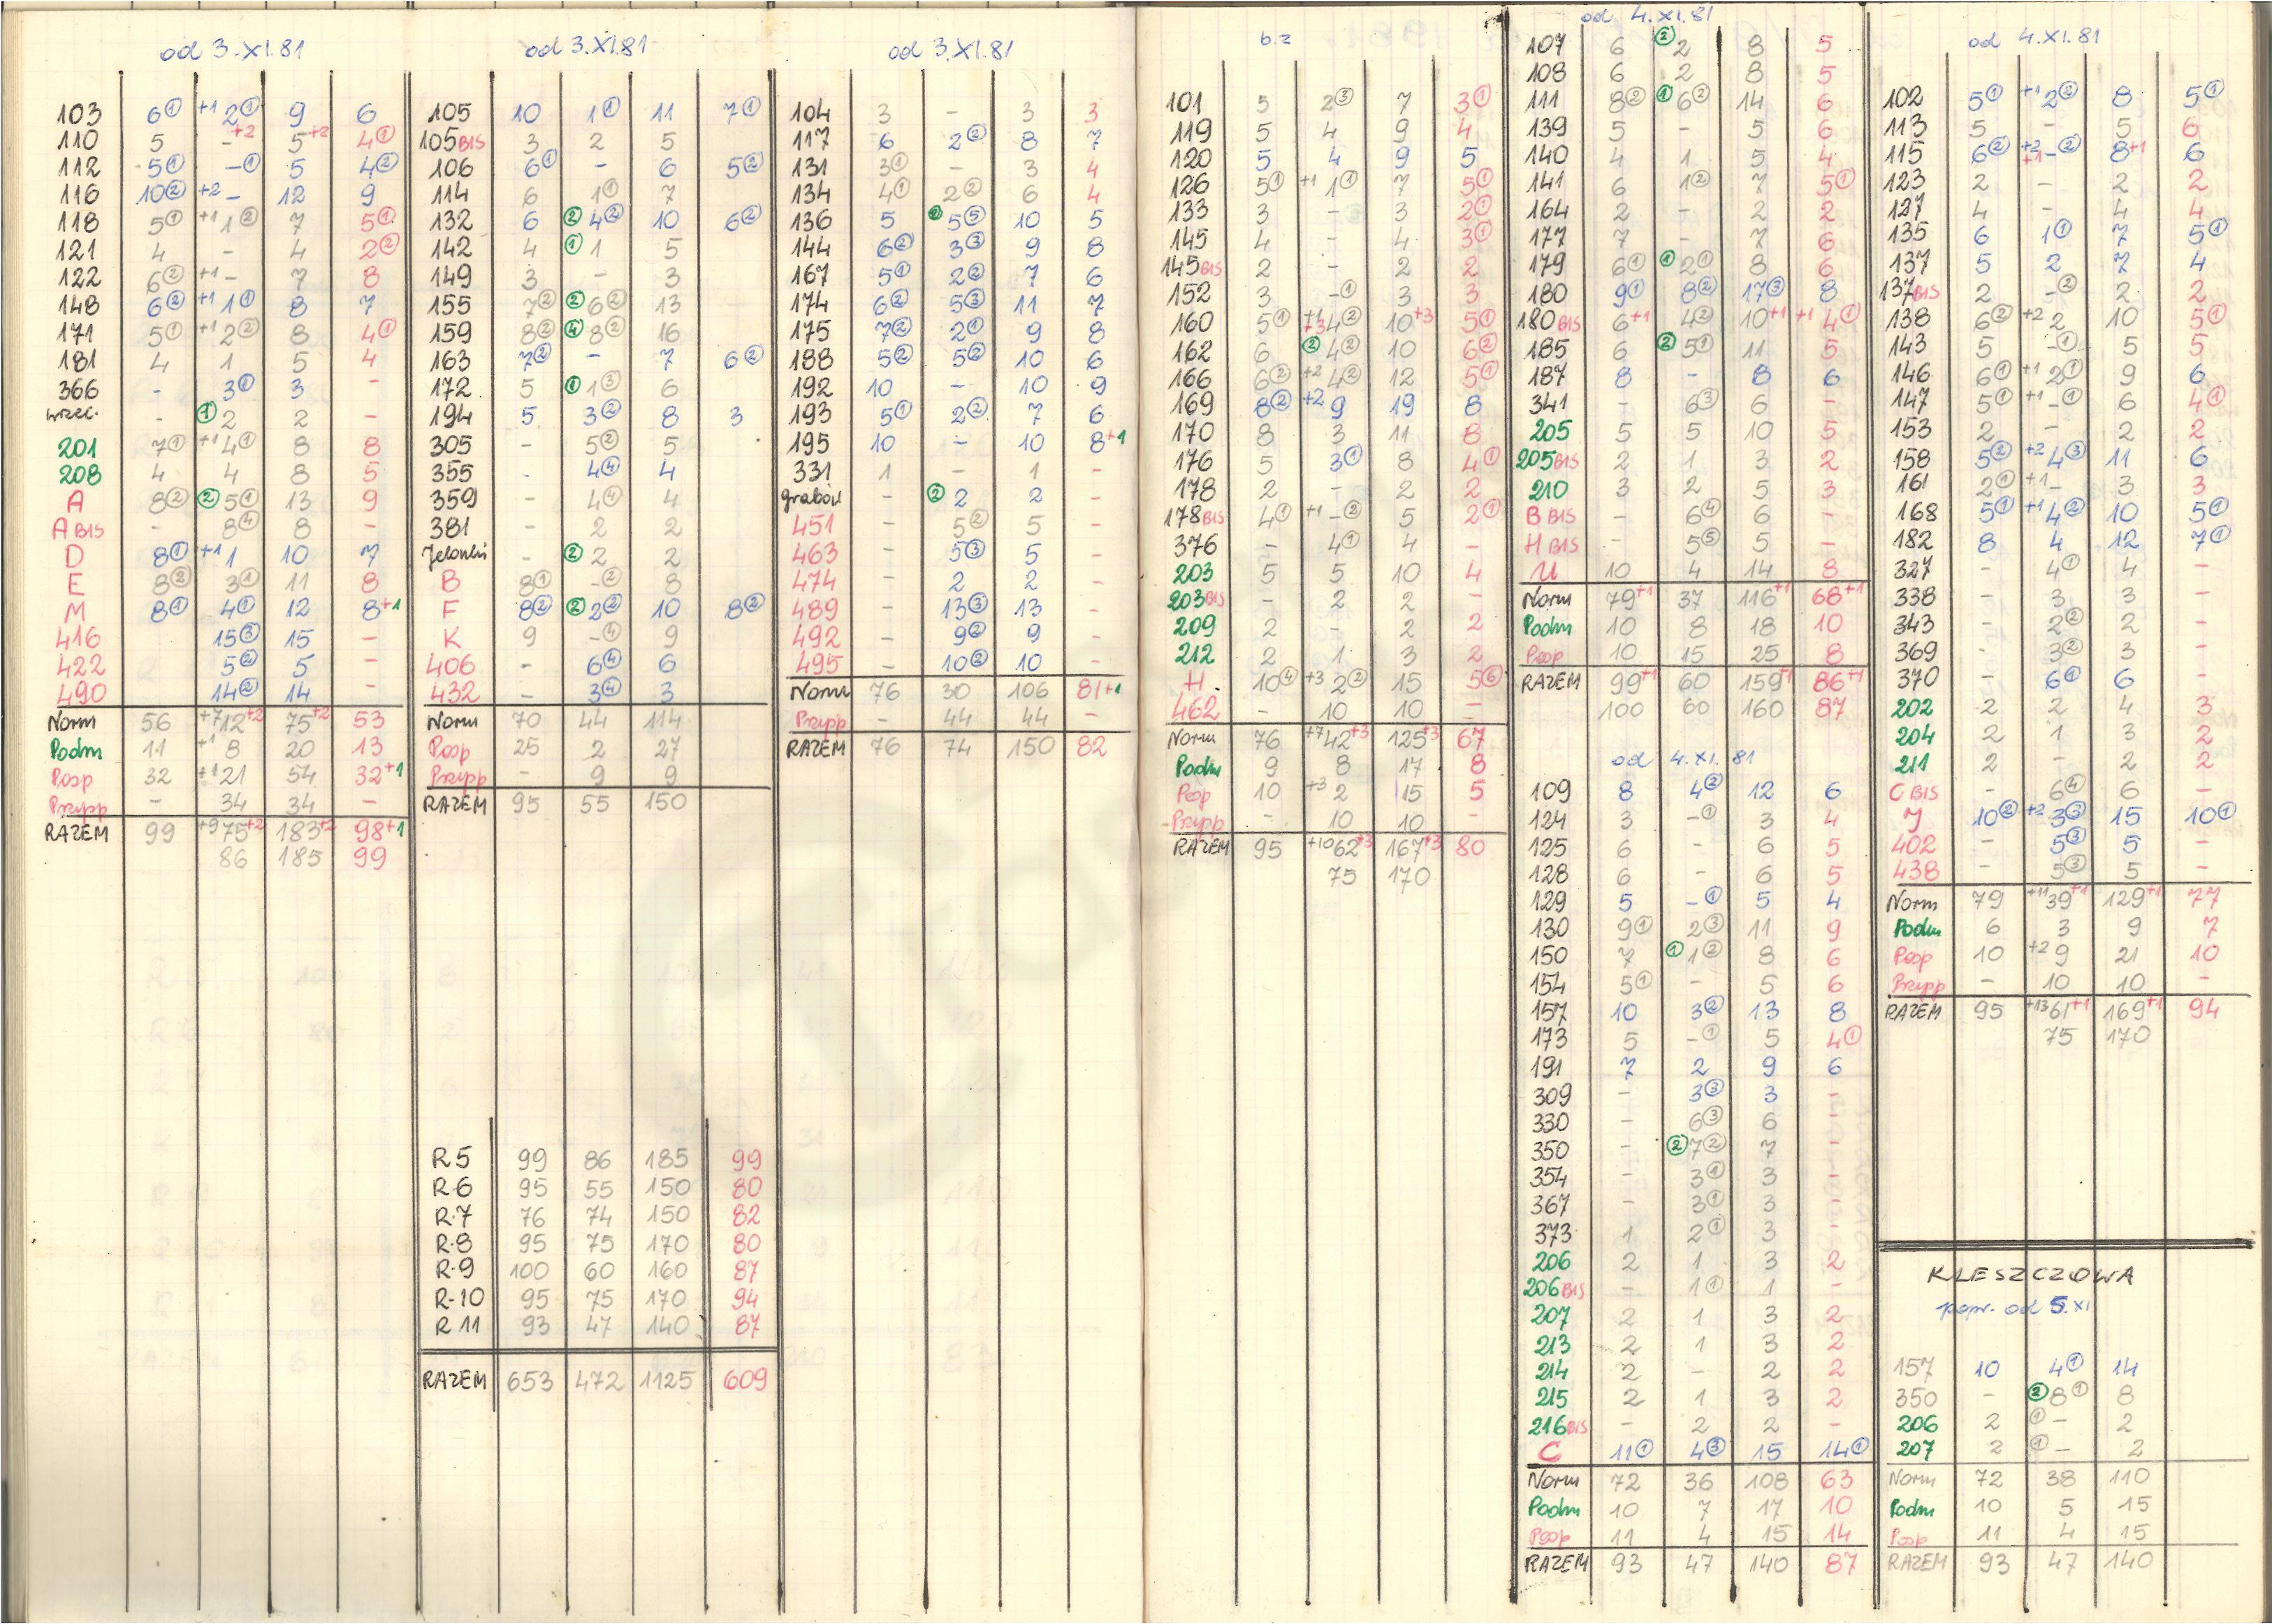 od 3.XI.81
103 6① +1 2① 9 6
110 5 -+2 5+2 4①
112 5① -① 5 4②
116 10② +2 - 12 9
118 5① +1 1② 7 5①
121 4 - 4 2②
122 6② +1 - 7 8
148 6② +1 1① 8 7
171 5① +1 2② 8 4①
181 4 1 5 4
366 - 3① 3 -
wrzec. - ① 2 2 -
201 7① +1 4① 8 8
208 4 4 8 5
A 8② ② 5① 13 9
A BIS - 8④ 8 -
D 8① +1 1 10 7
E 8② 3① 11 8
M 8① 4① 12 8+1
416 15③ 15 -
422 5② 5 -
490 14② 14 -
Norm 56 +7 12+2 75+2 53
Podm 11 +1 8 20 13
Posp 32 +1 21 54 32+1
Przysp - 34 34 -
RAZEM 99 +9 75+2 183+2 98+1
86 185 99
od 3.XI.81
105 10 1① 11 7①
105 BIS 3 2 5
106 6① - 6 5②
114 6 1① 7
132 6 ② 4② 10 6②
142 4 ① 1 5
149 3 - 3
155 7② ② 6② 13
159 8② ④ 8② 16
163 7② - 7 6②
172 5 ① 1③ 6
194 5 3② 8 3
305 - 5② 5
355 - 4④ 4
359 - 4④ 4
381 - 2 2
Jelonki - ② 2 2
B 8① -② 8
F 8② ② 2② 10 8②
K 9 -④ 9
406 - 6④ 6
432 - 3④ 3
Norm 70 44 114
Posp 25 2 27
Przysp - 9 9
RAZEM 95 55 150
R 5 99 86 185 99
R-6 95 55 150 80
R-7 76 74 150 82
R-8 95 75 170 80
R-9 100 60 160 87
R-10 95 75 170 94
R 11 93 47 140 87
RAZEM 653 472 1125 609
od 3.XI.81
104 3 - 3 3
117 6 2② 8 7
131 3① - 3 4
134 4① 2② 6 4
136 5 ② 5⑤ 10 5
144 6② 3③ 9 8
167 5① 2② 7 6
174 6② 5③ 11 7
175 7② 2① 9 8
188 5② 5② 10 6
192 10 - 10 9
193 5① 2② 7 6
195 10 - 10 8+1
331 1 - 1 -
grabów - ② 2 2 -
451 - 5② 5 -
463 - 5③ 5 -
474 - 2 2 -
489 - 13③ 13 -
492 - 9② 9 -
495 - 10② 10 -
Norm 76 30 106 81+1
Przysp - 44 44 -
RAZEM 76 74 150 82
b.z
101 5 2③ 7 3①
119 5 4 9 4
120 5 4 9 5
126 5① +1 1① 7 5①
133 3 - 3 2①
145 4 - 4 3①
145 BIS 2 - 2 2
152 3 -① 3 3
160 5① +1 +3 4② 10+3 5①
162 6 ② 4② 10 6②
166 6② +2 4② 12 5①
169 8② +2 9 19 8
170 8 3 11 8
176 5 3① 8 4①
178 2 - 2 2
178 BIS 4① +1 -② 5 2①
376 - 4① 4 -
203 5 5 10 4
203 BIS - 2 2 -
209 2 - 2 2
212 2 1 3 2
H 10④ +3 2② 15 5⑥
462 - 10 10 -
Norm 76 +7 42+3 125+3 67
Podm 9 8 17 8
Posp 10 +3 2 15 5
Przysp - 10 10 -
RAZEM 95 +10 62+3 167+3 80
75 170
od 4.XI.81
107 6 ② 2 8 5
108 6 2 8 5
111 8② ① 6② 14 6
139 5 - 5 6
140 4 1 5 4
141 6 1② 7 5①
164 2 - 2 2
177 7 - 7 6
179 6① ① 2① 8 6
180 9① 8② 17③ 8
180 BIS 6+1 4② 10+1 +1 4①
185 6 ② 5① 11 5
187 8 - 8 6
341 - 6③ 6 -
205 5 5 10 5
205 BIS 2 1 3 2
210 3 2 5 3
B BIS - 6④ 6 -
H BIS - 5⑤ 5 -
U 10 4 14 8
Norm 79+1 37 116+1 68+1
Podm 10 8 18 10
Posp 10 15 25 8
RAZEM 99+1 60 159+1 86+1
100 60 160 87
od 4.XI.81
109 8 4② 12 6
124 3 -① 3 4
125 6 - 6 5
128 6 - 6 5
129 5 -① 5 4
130 9① 2③ 11 9
150 7 ① 1② 8 6
154 5① - 5 6
157 10 3② 13 8
173 5 -① 5 4①
191 7 2 9 6
309 - 3③ 3 -
330 - 6③ 6 -
350 - ② 7② 7 -
354 - 3① 3 -
367 - 3① 3 -
373 1 2① 3 -
206 2 1 3 2
206 BIS - 1① 1 -
207 2 1 3 2
213 2 1 3 2
214 2 - 2 2
215 2 1 3 2
216 BIS - 2 2 -
C 11① 4③ 15 14①
Norm 72 36 108 63
Podm 10 7 17 10
Posp 11 4 15 14
RAZEM 93 47 140 87
od 4.XI.81
102 5① +1 2② 8 5①
113 5 - 5 6
115 6② +2 +1 -② 8+1 6
123 2 - 2 2
127 4 - 4 4
135 6 1① 7 5①
137 5 2 7 4
137 BIS 2 -② 2 2
138 6② +2 2 10 5①
143 5 -① 5 5
146 6① +1 2① 9 6
147 5① +1 -① 6 4①
153 2 - 2 2
158 5② +2 4③ 11 6
161 2① +1 - 3 3
168 5① +1 4② 10 5①
182 8 4 12 7①
327 - 4① 4 -
338 - 3 3 -
343 - 2② 2 -
369 - 3② 3 -
370 - 6① 6 -
202 2 2 4 3
204 2 1 3 2
211 2 - 2 2
C BIS - 6④ 6 -
J 10② +2 3③ 15 10①
402 - 5③ 5 -
438 - 5③ 5 -
Norm 79 +11 39+1 129+1 77
Podm 6 3 9 7
Posp 10 +2 9 21 10
Przysp - 10 10 -
RAZEM 95 +13 61+1 169+1 94
75 170
KLESZCZOWA
popr. od 5.XI
157 10 4① 14
350 - ② 8① 8
206 2 ① - 2
207 2 ① - 2
Norm 72 38 110
Podm 10 5 15
Posp 11 4 15
RAZEM 93 47 140